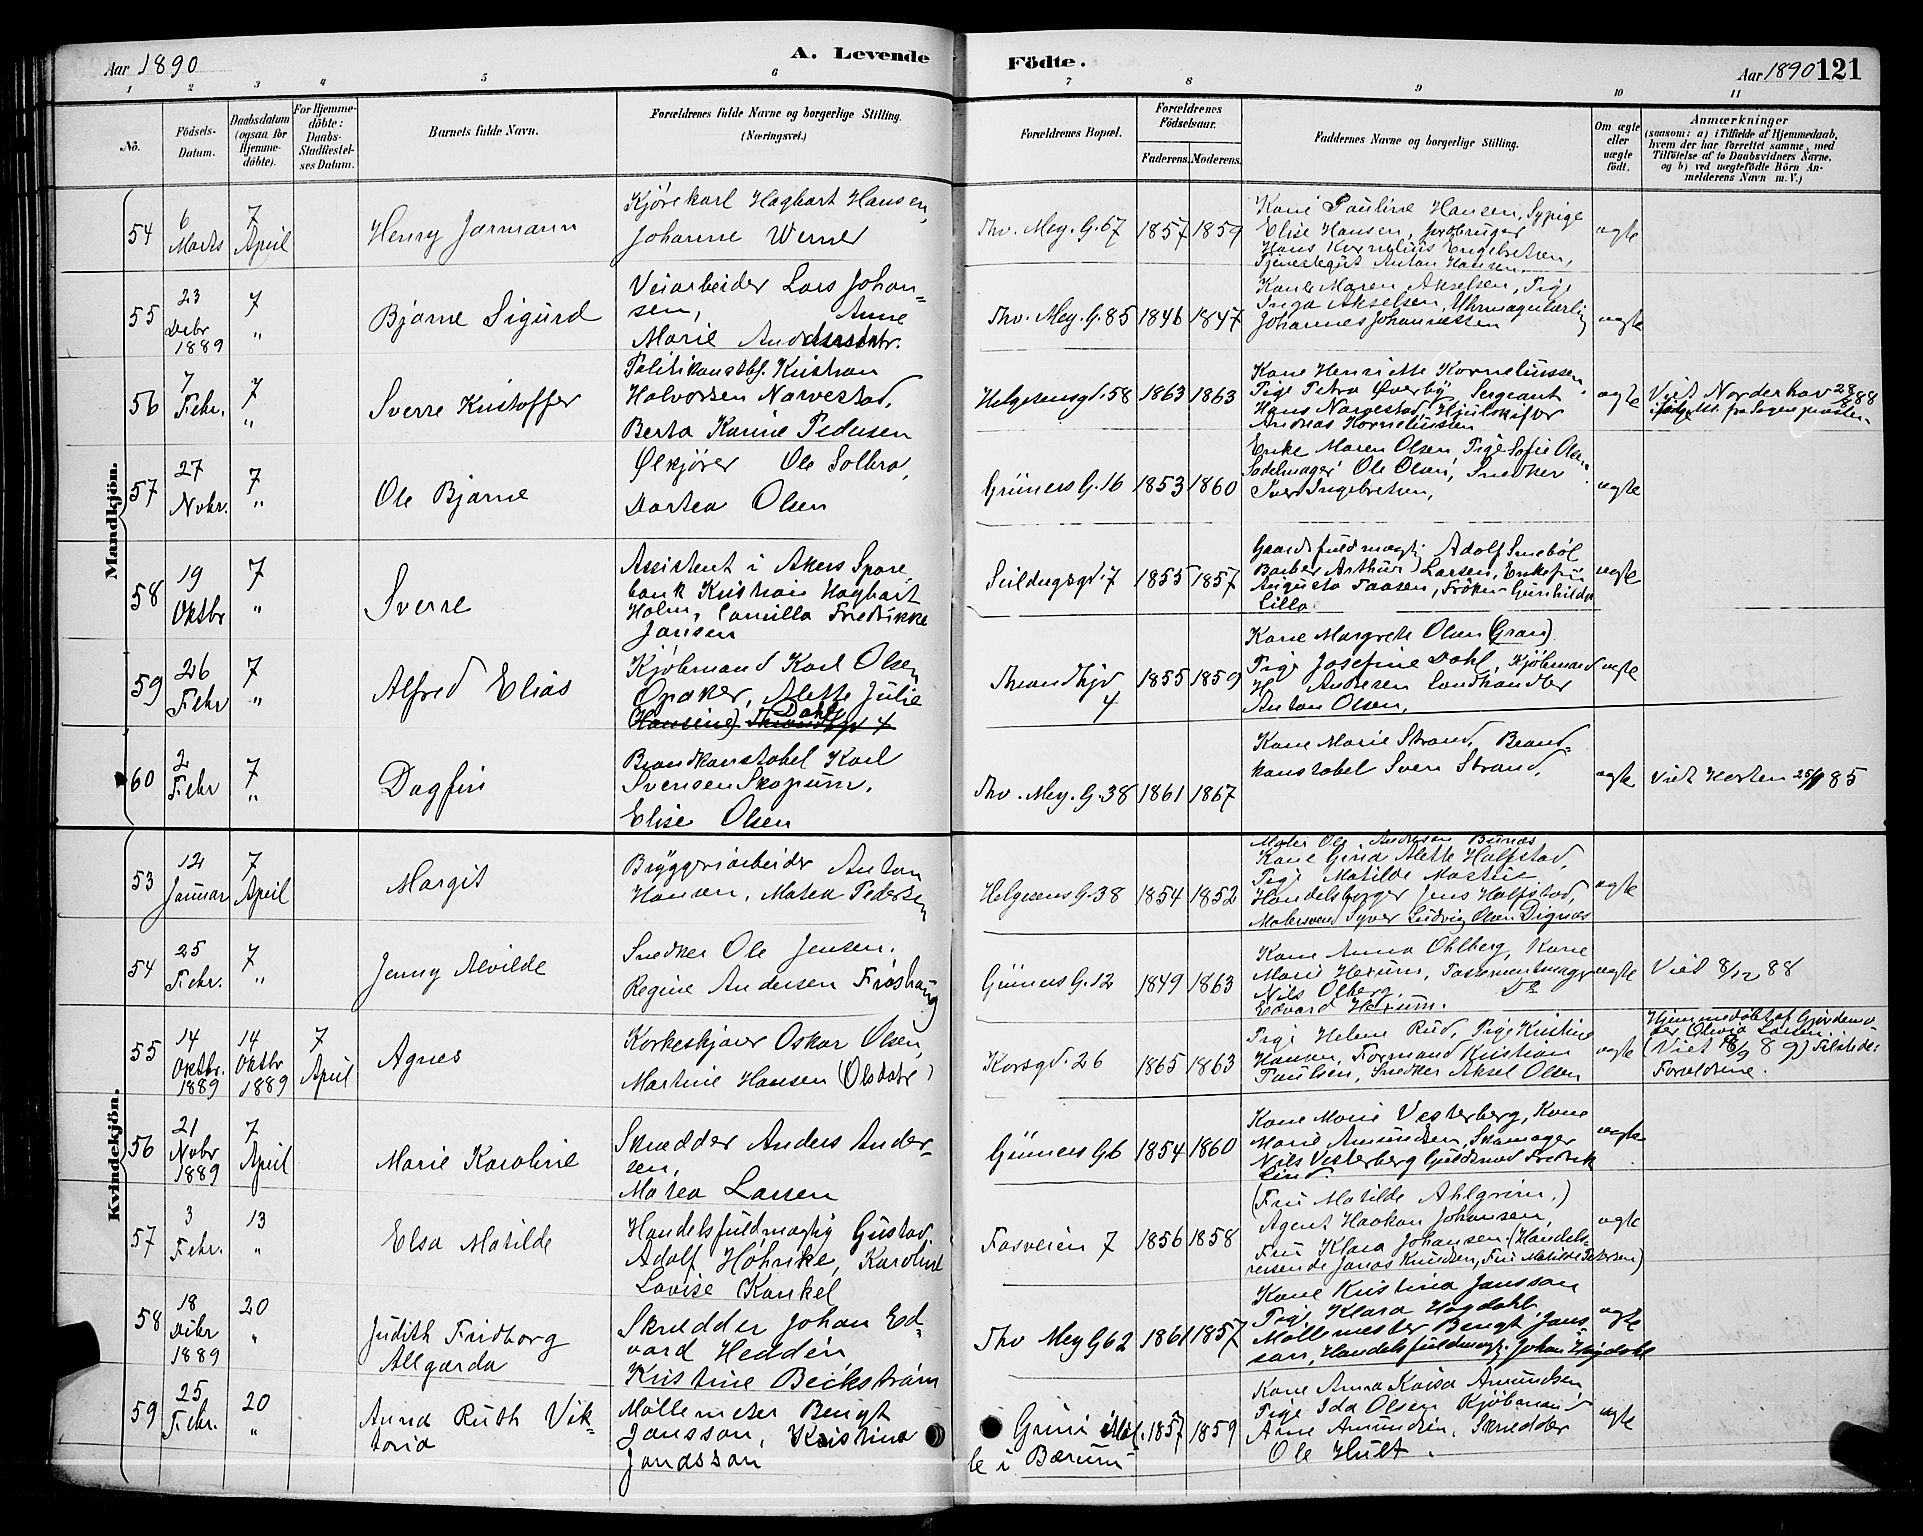 Aar 1890
A. Levende
Födte.
Aar 1890 121
1 2 3 4 5 6 7 8 9 10 11
No.
Födsels-
Datum.
Daabsdatum
(ogsaa for
Hjemme-
döbte).
For Hjemme-
döbte:
Daabs-
Stadfæstel-
ses Datum.
Barnets fulde Navn.
Forældrenes fulde Navne og borgerlige Stilling.
(Næringsvei.)
Forældrenes Bopæl.
Forældrenes
Födselsaar.
Faderens. Moderens.
Faddernes Navne og borgerlige Stilling.
Om ægte
eller
uægte
födt.
Anmærkninger
(saasom: a) i Tilfælde af Hjemmedaab,
hvem der har forrettet samme, med
Tilföielse af to Daabsvidners Navne,
og b) ved uægtefödte Börn An-
melderens Navn m. V.)
Mandkjön.
54
6
Marts
7
April
Henry Jarmann
Kjørekarl Hagbart Hansen,
Johanne Werner
Thv. Mey. G. 67
1857 1859
Kone Pauline Hansen, Sypige
Elise Hansen,
Hans Kornelius Engebretsen,
Tjenestegut Anton Hansen.
ægte
55
23
Decbr
1889
7
"
Bjarne Sigurd
Veiarbeider Lars Johan-
sen, Anne
Marie Andersdatr.
Thv. Mey. G. 85
1846 1847
Kone Maren Akselsen, Pige
Inga Akselsen, Uhrmagerlærling
Johannes Johannessen
uægte
56
7
Febr.
7
"
Sverre Kristoffer
Politikonstbl. Kristian
Halvorsen Narvestad,
Berta Karine Pedersen
Helgesensgd. 58
1863 1863
Kone Henriette Korneliussen,
Pige Petra Øverby, Sergeant
Hans Narvestad, Hjulskifer
Andreas Korneliussen
ægte
Viet Norderhov 28/8 88
ifølge Att. fra Sognepresten
57
27
Novbr.
7
"
Ole Bjarne
Ølkjører Ole Solbra,
Dortea Olsen
Grüners G. 16
1853 1860
Enke Maren Olsen, Pige Sofie Olsen
Sadelmager Ole Olsen, Snedker
Iver Ingebretsen,
uægte
58
19
Oktbr
7
"
Sverre
Assistent i Akers Spare
bank Kristian Hagbart
Holm, Camilla Fredrikke
Jansen
Seildugsgd. 7
1855 1857
Gaardsfuldmægtig Adolf Snebøl
Barber Arthur Larsen, Enkefru
Augusta Taasen, Frøken Gunhilda
Lilla
uægte
59
26
Febr
7
"
Alfred Elias
Kjøbmand Karl Olsen
Opaker, Alette Julie
Hansine) Dahl
Thrandhjgd
4
1855 1859
Kone Margrete Olsen (Gran)
Pige Josefine Dahl, Kjøbmand
H. Andresen Landhandler
Anton Olsen,
uægte
60
2
Febr
7
"
Dagfin
Brandkonstabel Karl
Svensen Skopum,
Elise Olsen
Thv. Mey. G. 38
1861 1867
Kone Marie Strand, Brand-
konstabel Sven Strand,
ægte
Viet Horten 85
Kvindekjön.
53
12
Januar
7
April
Margit
Bryggeriarbeider Anton
Hansen, Matea Pedersen
Helgesens G. 38
1854 1852
Maler Ole Andresen Bunæs
Kone Gina Alette Halfstad,
Pige Matilde Mastue
Handelsborger Jens Halfstad,
Malersvend Syver Ludvig Olsen Dignæs
ægte
54
25
Febr.
7
"
Jenny Alvilde
Snedker Ole Jensen,
Regine Andersen Froshaug
Grüners G. 12
1849 1863
Kone Anna Ohlberg, Kone
Marie Hexum, Possementmager
Nils Olberg, Do
Edvard Hexum.
ægte
Viet 8/12 88
55
14
Oktbr.
1889
14
Oktbr
1889
7
April
Agnes
Korkeskjører Oskar Olsen,
Martine Hansen (Olsdatr)
Korsgd. 26
1865 1863
Pige Helene Rud, Pige Kristine
Hansen, Formand Kristian
Paulsen, Snedker Aksel Olsen
ægte
Hjemmedøbt af Gjordemo-
der Olivia Larsen.
(Viet 18/9 89) Tilstede:
Forældrene.
56
21
Novbr
1889
7
April
Marie Karoline
Skrædder Anders Ander-
sen,
Matea Larsen
Grüners G 6
1854 1860
Kone Marie Vesterberg, Kone
Marie Amundsen, Skomager
Nils Vesterberg Guldsmed Fredrik
Lind.
uægte
57
3
Febr.
13
"
Elsa Matilde
Handelsfuldmægtig Gustav
Adolf Höhnke, Karoline
Lovise Kunkel
Fosveien 7
1856 1858
(Fru Matilde Ahlgrim,)
Agent Haakon Johansen,
Fru Klara Johansen (Handels-
reisende Jonas Knudsen, Fru Matilde Petersen)
ægte
58
18
Decbr
1889
20
"
Judith Fridborg
Allgarda
Skrædder Johan Ed-
vard Hedden
Kristine Beckstrøm
Thv Mey G 62
1861 1857
Kone Kristina Jansson
Pige Klara Høgdahl
Møllemester Bengt Jans
son, Handelsfuldmægt. Johan Høgdahl
ægte
59
25
Febr.
20
"
Anna Ruth Vik-
toria
Møllemester Bengt
Jansson, Kristina
Jandsson
Grini Møl-
le i Bærum
1857 1859
Kone Anna Kaisa Amundsen
Pige Ida Olsen Kjøbmand
Arne Amundsen, Skrædder
Ole Hult.
ægte